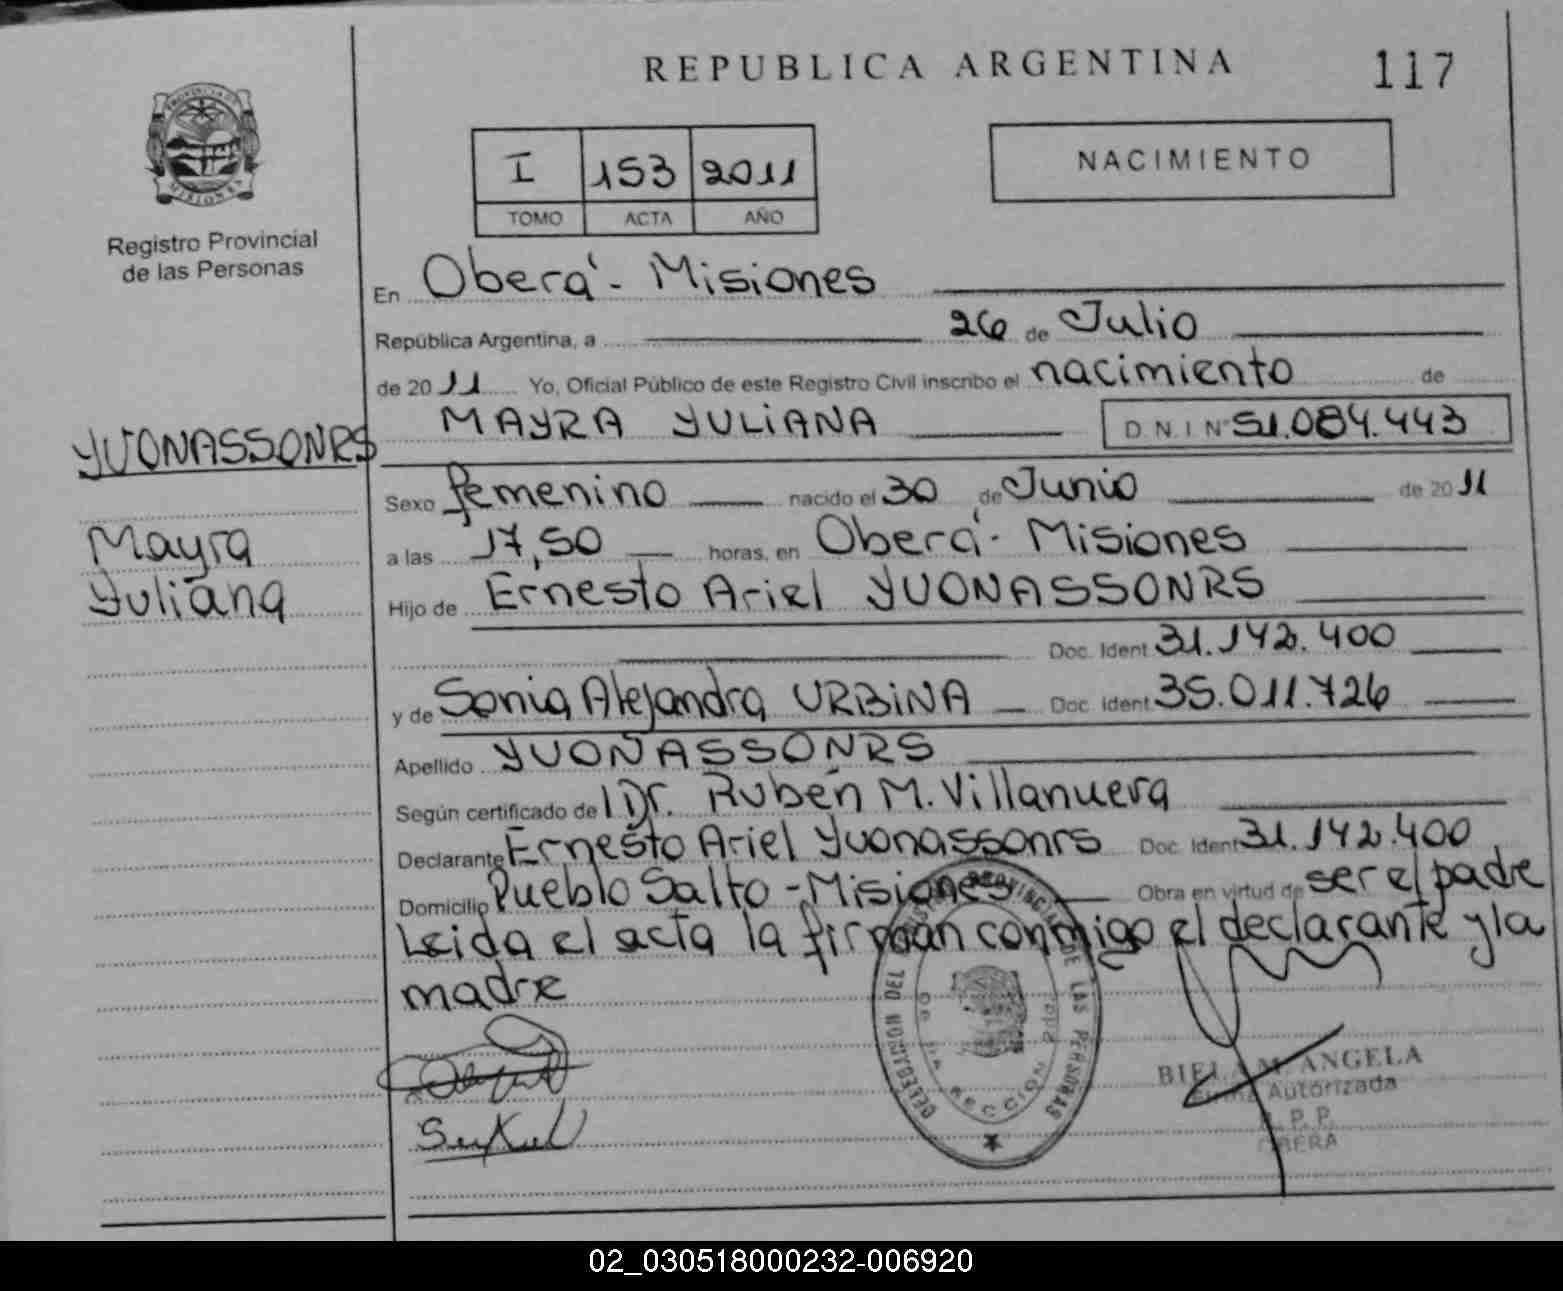 REPUBLICA ARGENTINA 117
PROVINCIA DE MISIONES
Registro Provincial
de las Personas
I 153 2011
TOMO ACTA AÑO
NACIMIENTO
En Oberá - Misiones
República Argentina, a 26 de Julio
de 2011 Yo, Oficial Público de este Registro Civil inscribo el nacimiento de
MAYRA YULIANA D.N.I Nº 51.084.443
YUONASSONRS
Mayra
Yuliana
Sexo femenino nacido el 30 de Junio de 2011
a las 17,50 horas, en Oberá - Misiones
Hijo de Ernesto Ariel YUONASSONRS
Doc. Ident 31.142.400
y de Sonia Alejandra URBINA Doc. Ident 35.011.726
Apellido YUONASSONRS
Según certificado de l Dr. Rubén M. Villanueva
Declarante Ernesto Ariel Yuonassonrs Doc. Ident 31.142.400
Domicilio Pueblo Salto - Misiones Obra en virtud de ser el padre
Leida el acta la firman conmigo el declarante y la
madre
DELEGACION DEL REGISTRO PROVINCIAL DE LAS PERSONAS
M. ANGELA
Firma Autorizada
R.P.P.
OBERA
02_030518000232-006920